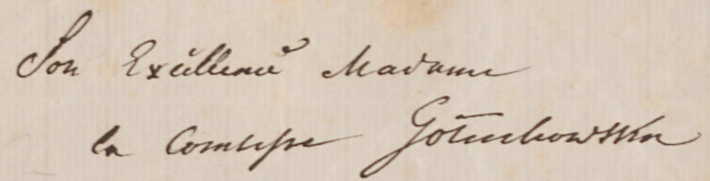 Son Excellence Madame
la Comtesse Gołuchowska